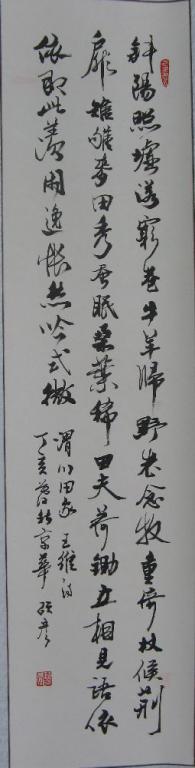 斜陽照墟落窮巷牛羊歸野老念牧童倚杖候荊
扉雉雊麥田秀蚕眠桑葉稀田夫荷鋤立相見語依
依即此羨閒逸悵然吟式微
渭川田家 王維詩
丁亥 於京華